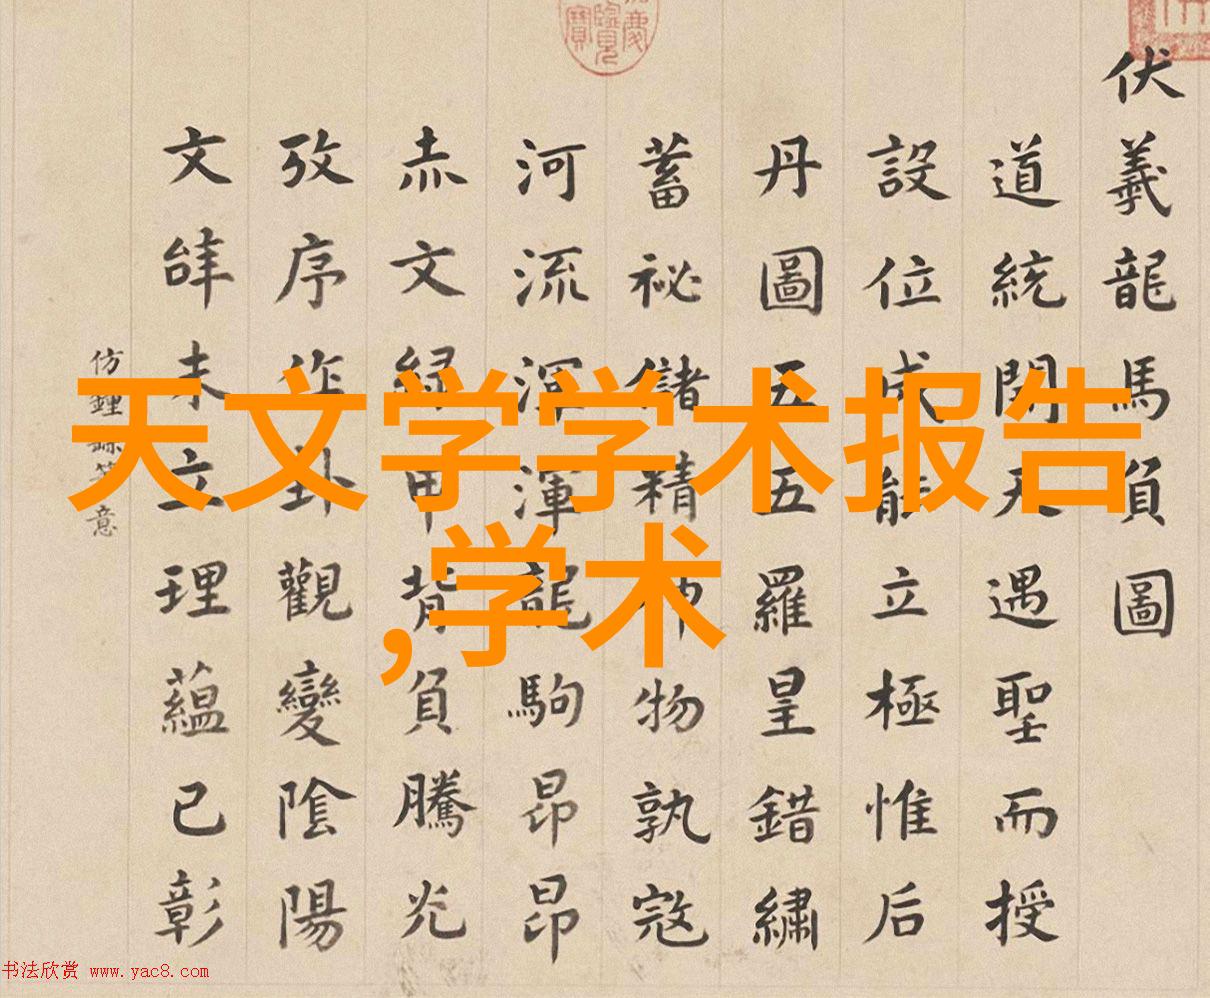 伏羲龍馬負圖
道統開天遇聖而授
設位成能立極惟后
丹圖五五羅皇錯繡
蓄祕儲精神物孰寇
河流渾渾龍駒昂昂
赤文綠甲背負騰光
攷序作卦觀變陰陽
文辭未立理蘊已彰
仿鍾繇筆意
天文学学术报告
,学术
书法欣赏 www.yac8.com